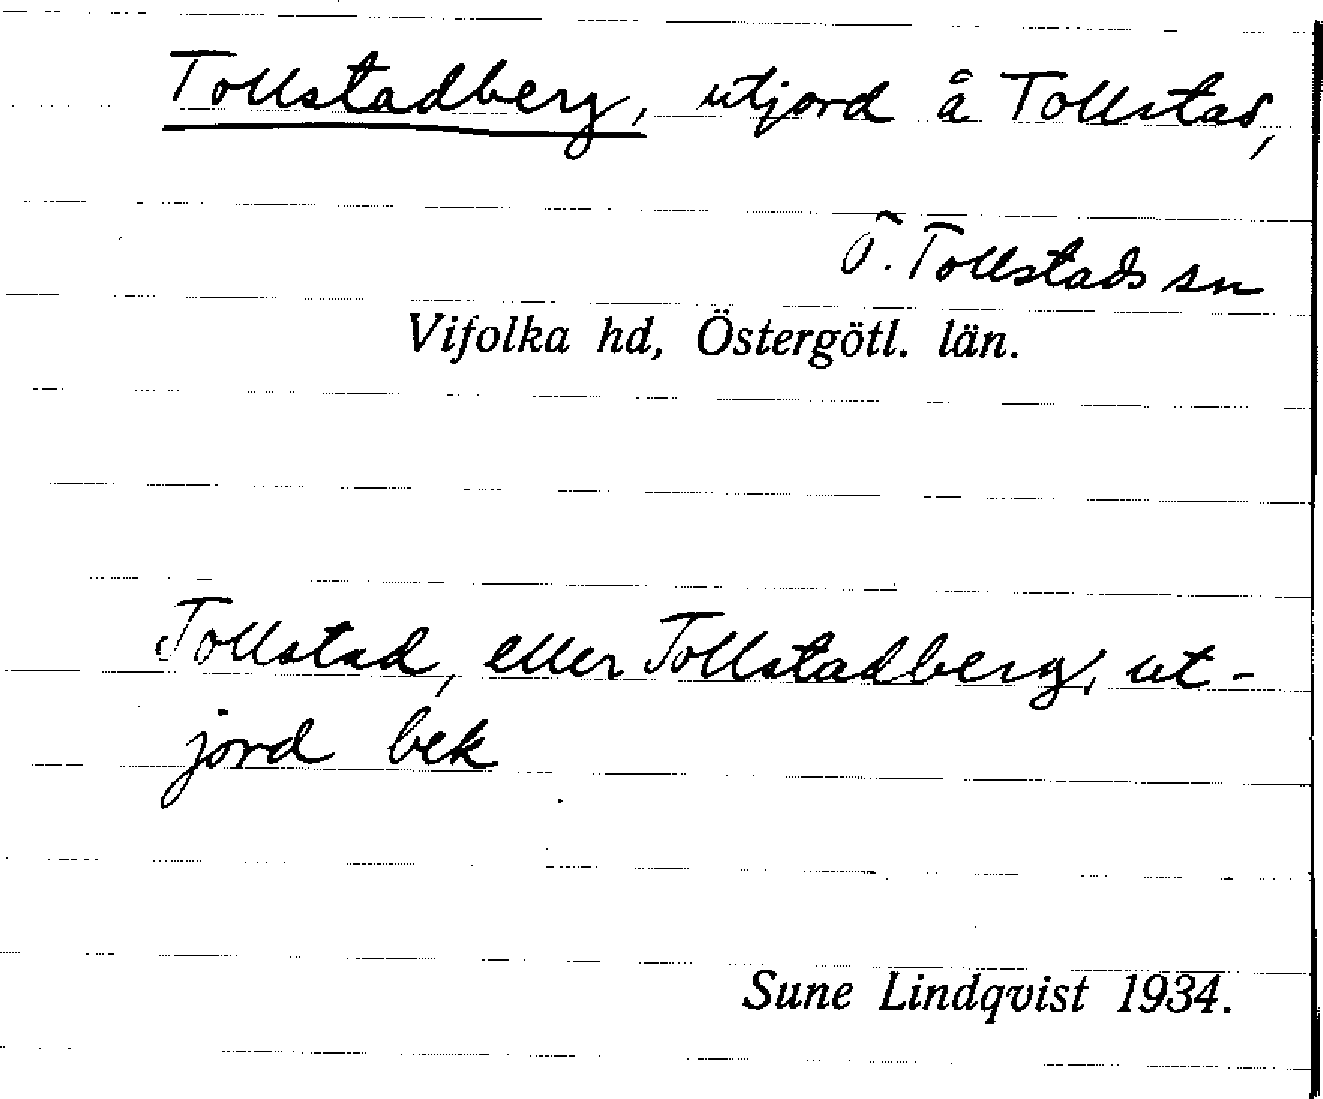 Tollstadberg, utjord å Tollstad,
Ö. Tollstads sn
Vifolka hd, Östergötl. län.
Tollstad, eller Tollstadberg, ut-
jord bek
Sune Lindqvist 1934.